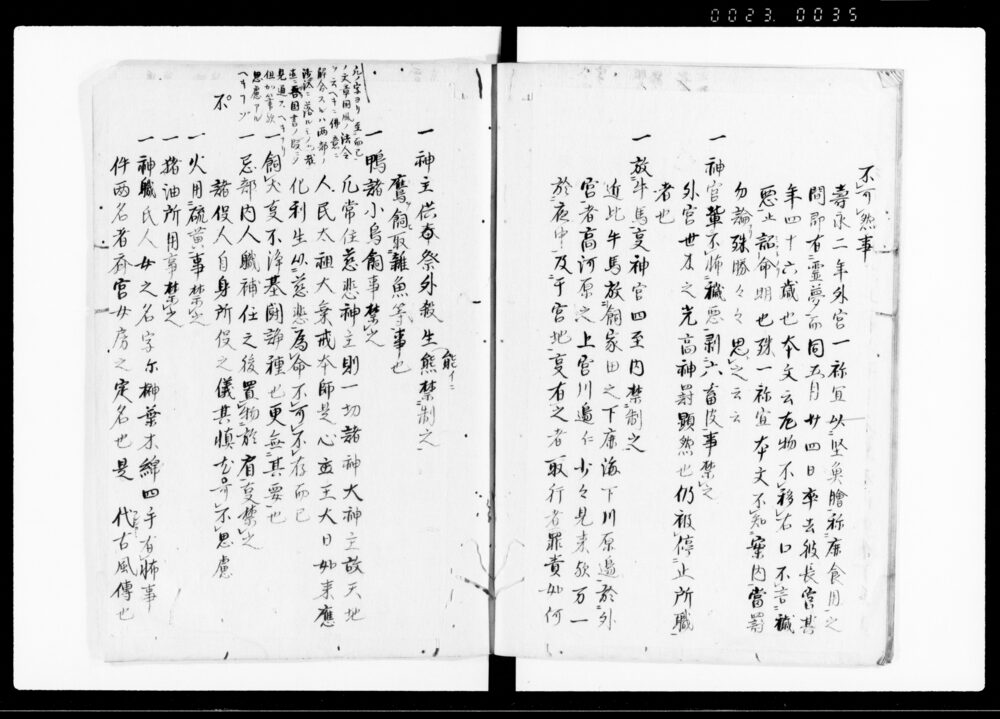 0023.0035
不可然事
壽永二年外宮一祢宜以堅奥膾祢席食用之
間即有霊夢而同五月廿四日卒去彼長官其
年四十六歳也本文云左物不移右口不言穢
悪止詔命明也殊一祢宜本文不知案内當罸
勿論殊勝々々思之云云
一神官輩不怖穢悪剥六畜皮事禁之
外宮世木之先高神罸顕然也仍被停止所職
者也
一放牛馬事神官四至内禁制之
近比牛馬放飼家田之下庫海下川原邊於外
宮者高河原之上宮川邊仁少々見来歟万一
於夜中及于宮地事有之者取行者罪責如何
一神主供奉祭外殺生熊禁制之
能イニ
鷹飼取雑魚等事也
一鴨諸小鳥飼事禁之
凡常住慈悲神主則一切諸神大神主故天地
人民太祖大棄戒本師是心並王大日如来應
化利生以慈悲為命不可不存而已
一飼犬事不浄基闘諍種也更無其要也
一忌部内人職補任之後置物於宥事禁之
諸役人自身所役之儀其慎尤可不思慮
一火用硫黄事禁之
一猪油所用事禁之
一神職氏人女之名字尓榊葉木綿四手有怖事
件両名者斎宮女房之定名也是代古風傳也